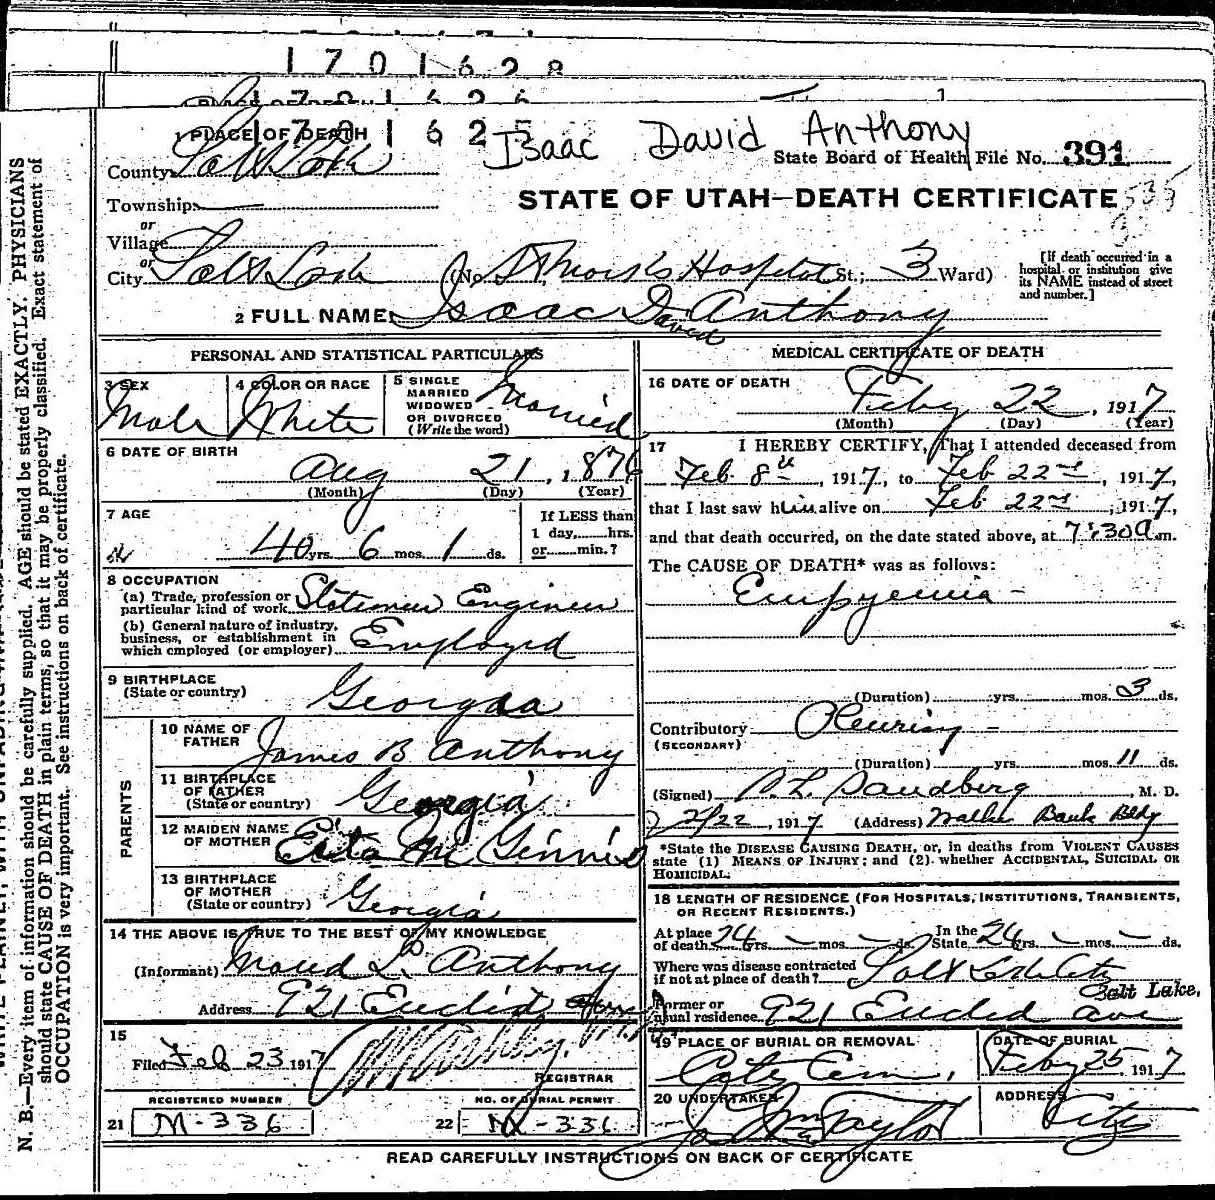 1701628
1701626
1 PLACE OF DEATH
170162
Isaac David Anthony
State Board of Health File No. 391
County Salt Lake
STATE OF UTAH—DEATH CERTIFICATE
Township
or
Village
or
City Salt Lake (No. St Mark's Hospital St.; 3 Ward)
[If death occurred in a hospital or institution give its NAME instead of street and number.]
2 FULL NAME Isaac David Anthony
PERSONAL AND STATISTICAL PARTICULARS
3 SEX Male
4 COLOR OR RACE White
5 SINGLE MARRIED WIDOWED OR DIVORCED (Write the word) Married
6 DATE OF BIRTH Aug 21, 1876
(Month) (Day) (Year)
7 AGE 40 yrs. 6 mos. 1 ds.
If LESS than 1 day, hrs. or min.?
8 OCCUPATION
(a) Trade, profession or particular kind of work Engineer
(b) General nature of industry, business, or establishment in which employed (or employer) Employed
9 BIRTHPLACE (State or country) Georgia
PARENTS
10 NAME OF FATHER James B Anthony
11 BIRTHPLACE OF FATHER (State or country) Georgia
12 MAIDEN NAME OF MOTHER Mc Ginnis
13 BIRTHPLACE OF MOTHER (State or country) Georgia
14 THE ABOVE IS TRUE TO THE BEST OF MY KNOWLEDGE
(Informant) Maud L. Anthony
Address 921 Euclid Ave
15
Filed Feb 23 1917
REGISTRAR
REGISTERED NUMBER
21 M-336
NO. OF BURIAL PERMIT
22 M-336
MEDICAL CERTIFICATE OF DEATH
16 DATE OF DEATH Feby 22, 1917
(Month) (Day) (Year)
17 I HEREBY CERTIFY, That I attended deceased from
Feb 8th, 1917, to Feb 22nd, 1917,
that I last saw him alive on Feb 22nd, 1917,
and that death occurred, on the date stated above, at 7:30 a m.
The CAUSE OF DEATH* was as follows:
Empyemia -
(Duration) yrs. mos. 3 ds.
Contributory Pleurisy -
(SECONDARY)
(Duration) yrs. mos. 11 ds.
(Signed) Sandberg, M. D.
2/22, 1917 (Address) Walker Bank Bldg
*State the DISEASE CAUSING DEATH, or, in deaths from VIOLENT CAUSES
state (1) MEANS OF INJURY; and (2) whether ACCIDENTAL, SUICIDAL OR
HOMICIDAL.
18 LENGTH OF RESIDENCE (FOR HOSPITALS, INSTITUTIONS, TRANSIENTS,
OR RECENT RESIDENTS.)
At place of death 24 yrs. — mos. — ds. In the State 24 yrs. — mos. — ds.
Where was disease contracted if not at place of death? Salt Lake City
Salt Lake,
Former or usual residence 921 Euclid ave
19 PLACE OF BURIAL OR REMOVAL City Cem.
DATE OF BURIAL Feby 25, 1917
20 UNDERTAKER Taylor
ADDRESS City
READ CAREFULLY INSTRUCTIONS ON BACK OF CERTIFICATE
N. B.—Every item of information should be carefully supplied. AGE should be stated EXACTLY. PHYSICIANS
should state CAUSE OF DEATH in plain terms, so that it may be properly classified. Exact statement of
OCCUPATION is very important. See instructions on back of certificate.